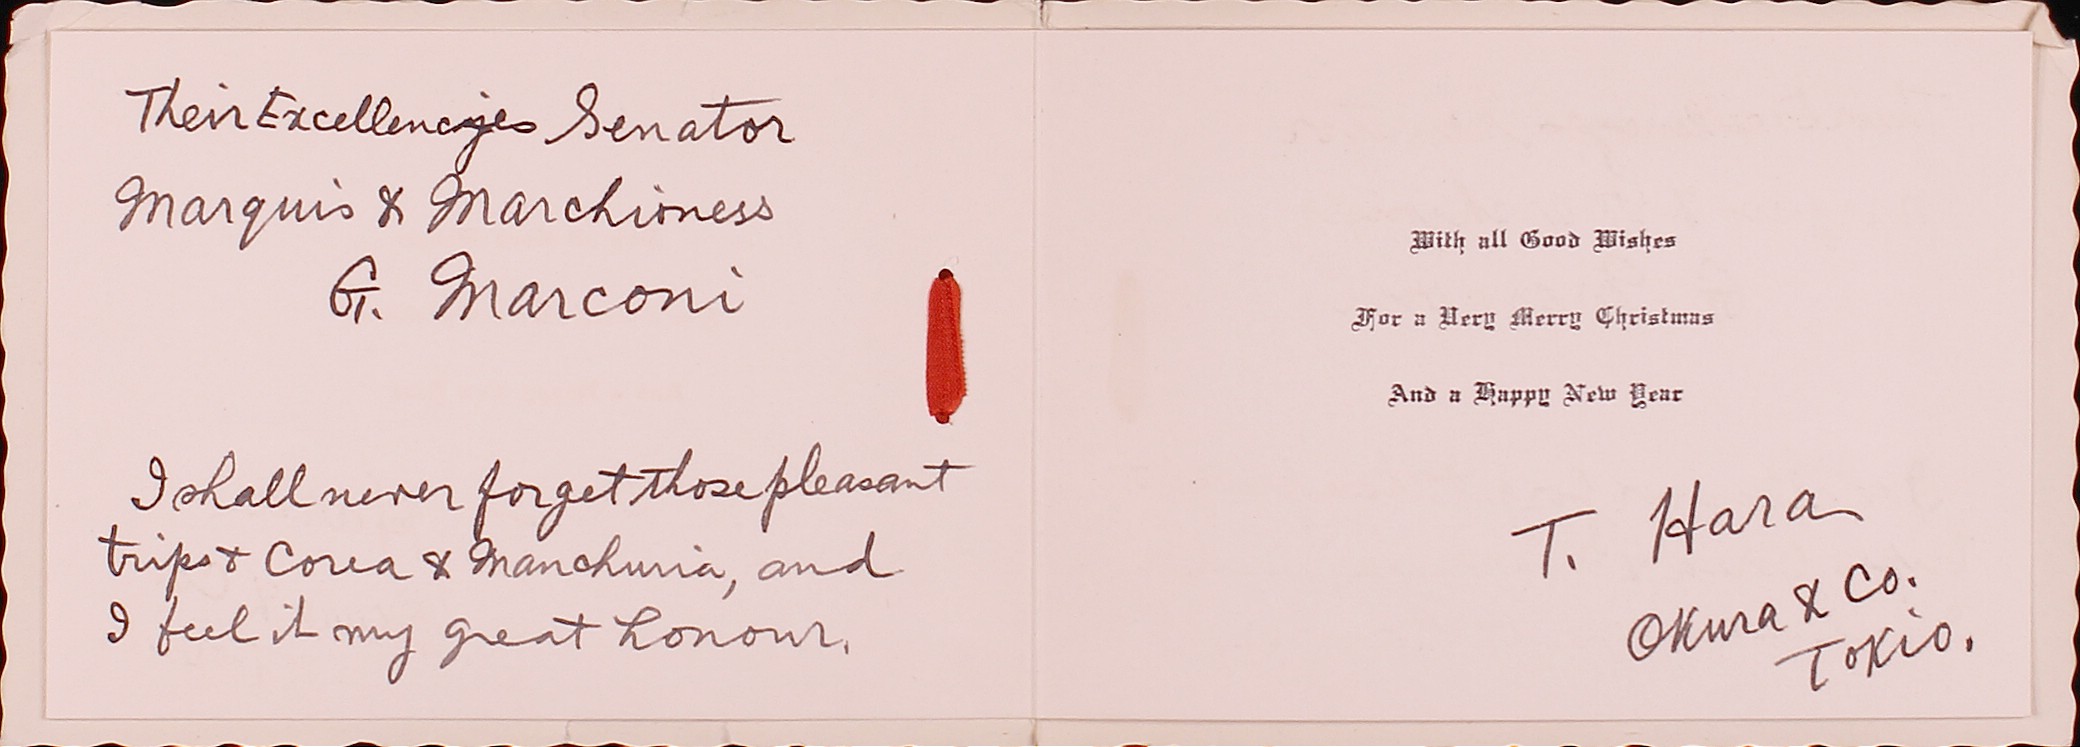 Their Excellencies Senator
Marquis & Marchioness
G. Marconi
I shall never forget those pleasant
trips + Corea & Manchuria, and
I feel it my great honour.
With all Good Wishes
For a Very Merry Christmas
And a Happy New Year
T. Hara
Okura & Co.
Tokio.